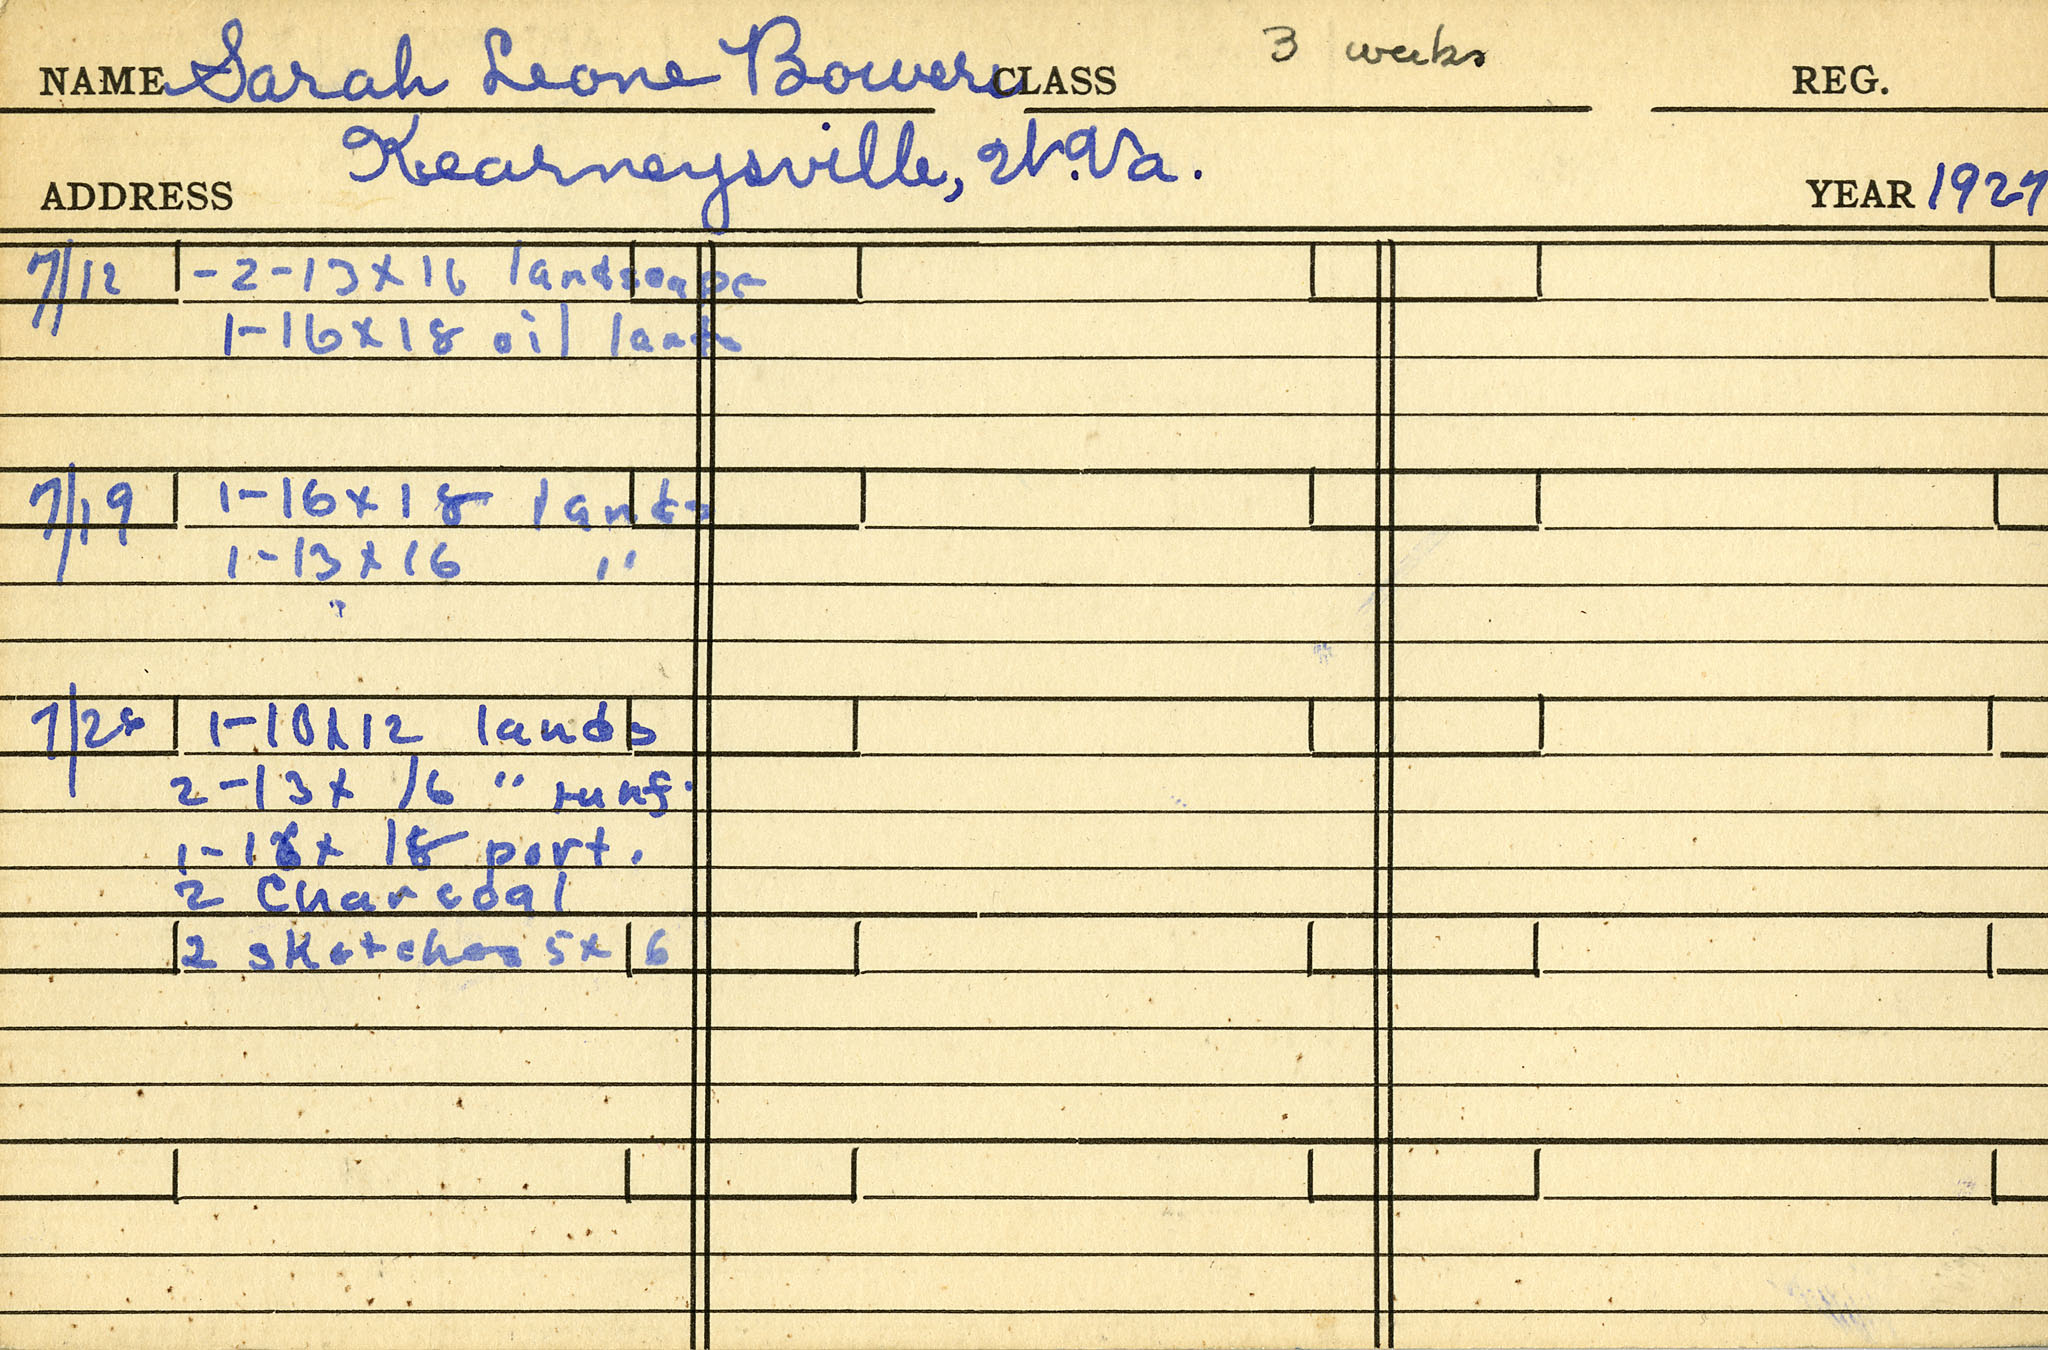 NAME Sarah Leone Bowers CLASS 3 weeks REG.
ADDRESS Kearneysville, W.Va. YEAR 1927
7/12 -2-13x16 landscape
1-16x18 oil lands
7/19 1-16x18 lands
1-13x16 "
"
7/28 1-10x12 lands
2-13x16 "
1-18x18 port.
2 Charcoal
2 sketches 5x6